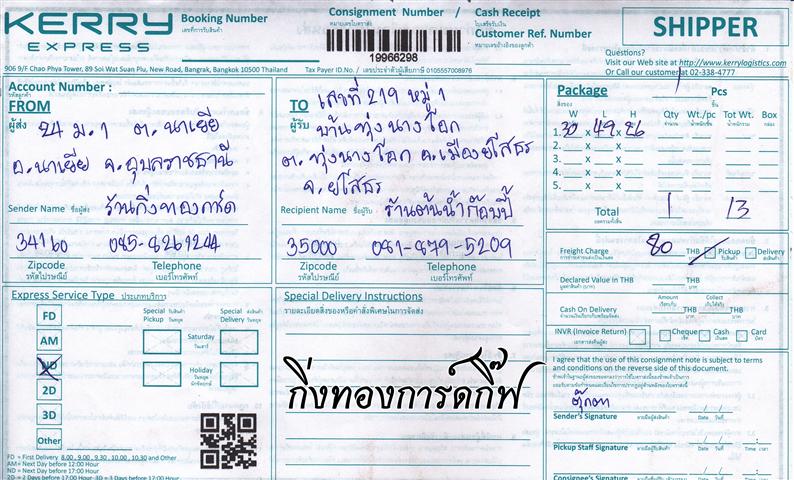 KERRY EXPRESS
Booking Number
เลขที่การรับสินค้า
Consignment Number / Cash Receipt
หมายเลขใบตราส่ง ใบเสร็จรับเงิน
Customer Ref. Number
หมายเลขอ้างอิงของลูกค้า
19966298
SHIPPER
Questions?
Visit our Web site at http://www.kerrylogistics.com
Or Call our customer at 02-338-4777
906 9/F Chao Phya Tower, 89 Soi Wat Suan Plu, New Road, Bangrak, Bangkok 10500 Thailand
Tax Payer ID.No. / เลขประจำตัวผู้เสียภาษี 0105557008976
Account Number :
รหัสลูกค้า
FROM
ผู้ส่ง 24 ม.1 ต. นาเยีย
อ.นาเยีย จ.อุบลราชธานี
Sender Name ชื่อผู้ส่ง ร้านกิ่งทองการ์ด
34160 085-8261244
Zipcode Telephone
รหัสไปรษณีย์ เบอร์โทรศัพท์
TO เลขที่ 219 หมู่ 1
ผู้รับ บ้านทุ่งนางโอก
ต. ทุ่งนางโอก อ.เมืองยโสธร
จ.ยโสธร
Recipient Name ชื่อผู้รับ ร้านต้นน้ำก๊อบปี้
35000 081-879-5209
Zipcode Telephone
รหัสไปรษณีย์ เบอร์โทรศัพท์
Package 1 Pcs
สิ่งของ ชิ้น
W L H Qty Wt./pc Tot Wt. Box
1. 30 x 49 x 26
2. x x
3. x x
4. x x
5. x x
Total 1 13
Freight Charge 80 THB Pickup Delivery
Declared Value in THB
Amount Collect
Cash On Delivery THB THB
INVR (Invoice Return) Cheque Cash Card
Express Service Type ประเภทบริการ
FD
AM
ND
2D
3D
Other
Special Pickup Special Delivery
Saturday
วันเสาร์
Holiday
วันหยุด
นักขัตฤกษ์
FD = First Delivery 8.00, 9.00, 9.30, 10.00, 10.30 and Other
AM = Next Day before 12:00 Hour
ND = Next Day before 17:00 Hour
2D = 2 Days before 17:00 Hour 3D = 3 Days before 17:00 Hour
Special Delivery Instructions
รายละเอียดสิ่งของหรือคำสั่งพิเศษในการจัดส่ง
กิ่งทองการ์ดกิ๊ฟ
I agree that the use of this consignment note is subject to terms
and conditions on the reverse side of this document.
ตุ๊กตา
Sender's Signature
Pickup Staff Signature
Consignee's Signature